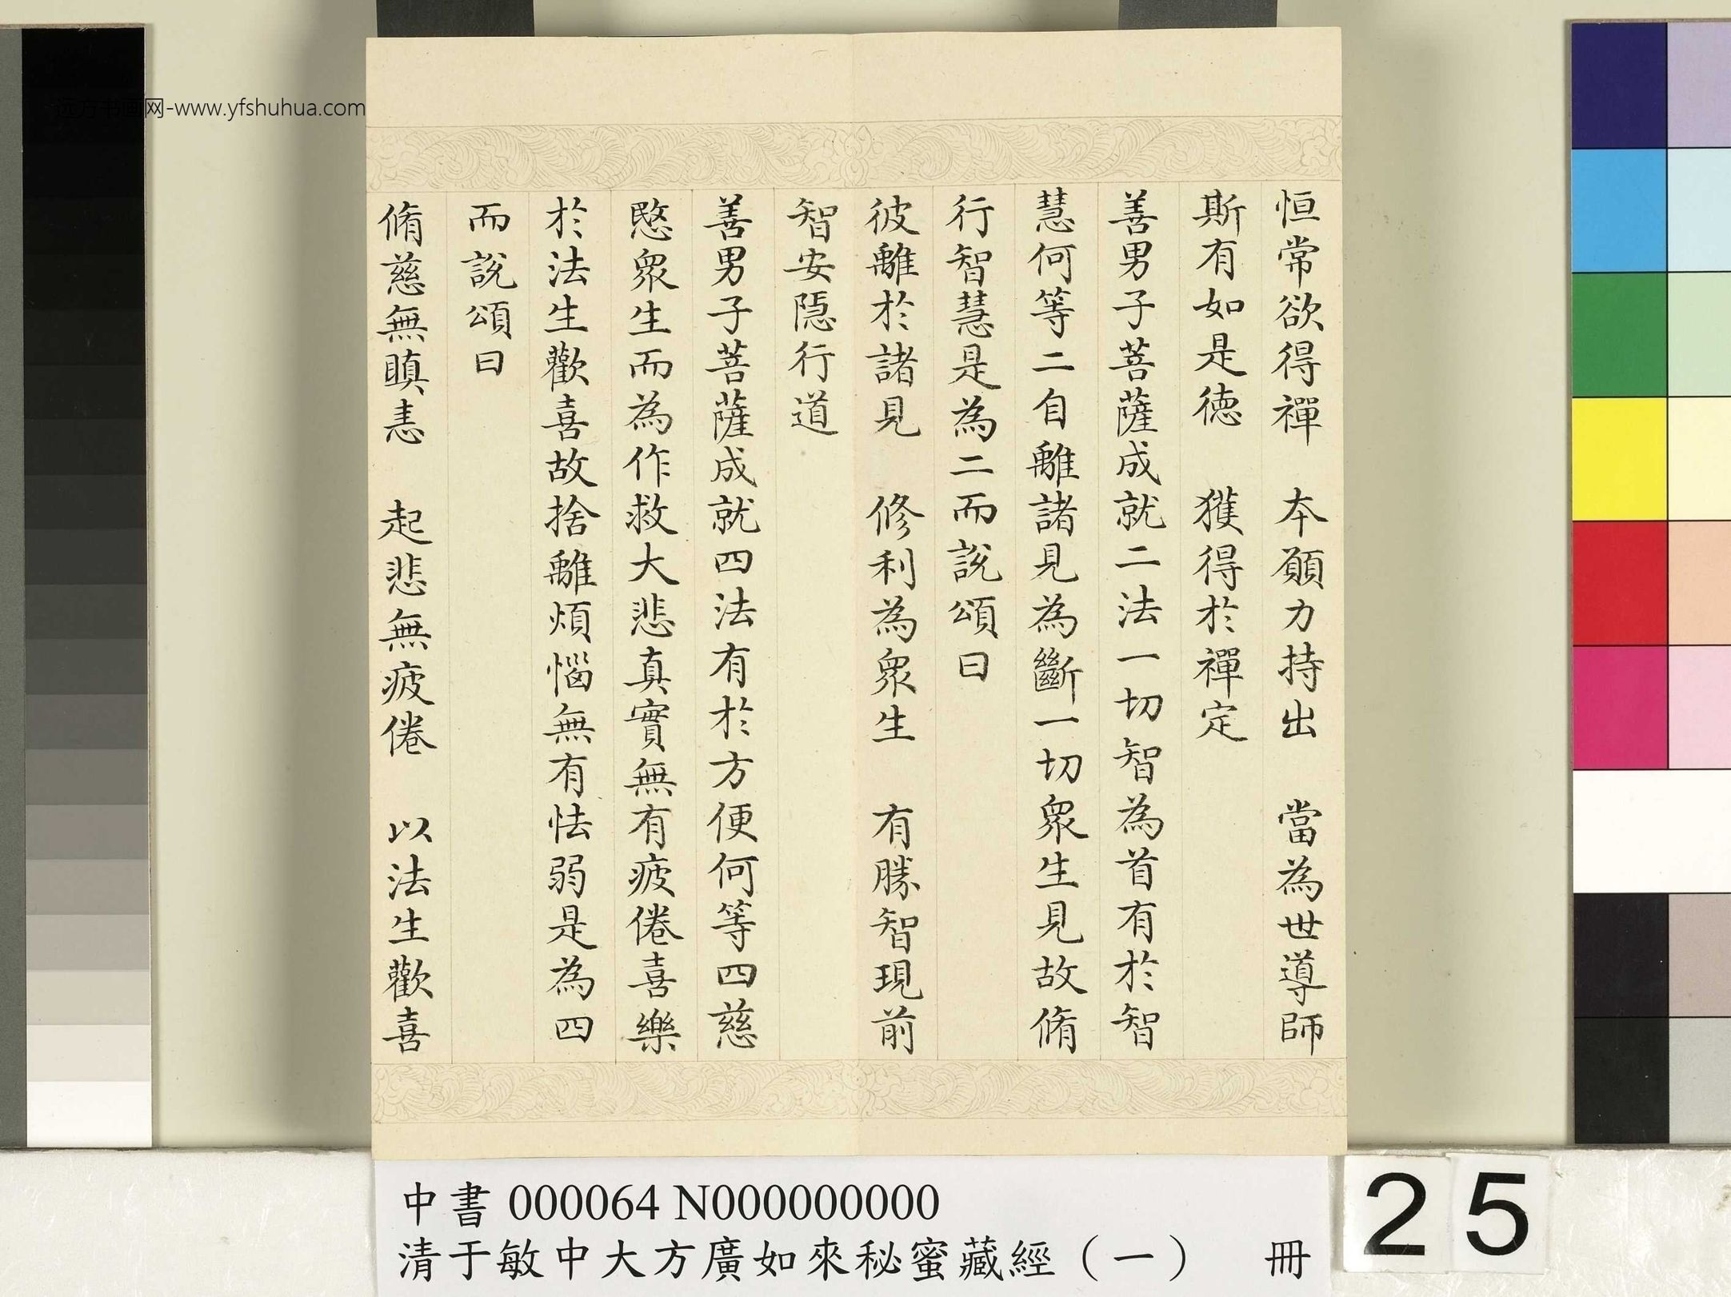 恒常欲得禪　本願力持出　當為世導師
斯有如是德　獲得於禪定
善男子菩薩成就二法一切智為首有於智
慧何等二自離諸見為斷一切眾生見故脩
行智慧是為二而說頌曰
彼離於諸見　修利為眾生　有勝智現前
智安隱行道
善男子菩薩成就四法有於方便何等四慈
愍眾生而為作救大悲真實無有疲倦喜樂
於法生歡喜故捨離煩惱無有怯弱是為四
而說頌曰
脩慈無瞋恚　起悲無疲倦　以法生歡喜
中書 000064 N000000000
清于敏中大方廣如來秘蜜藏經（一）　冊
25
远方书画网-www.yfshuhua.com